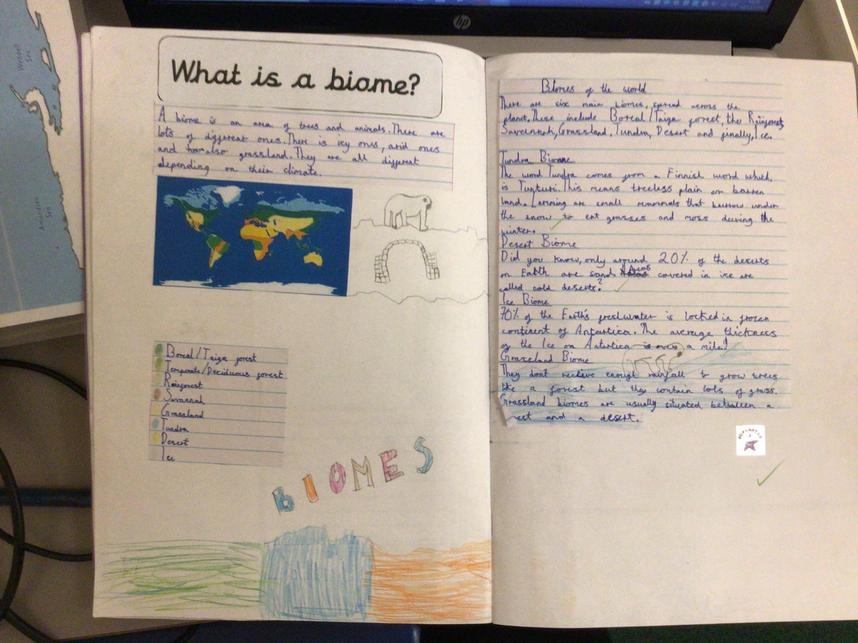 What is a biome?
A biome is an area of trees and animals. There are
lots of different ones. There is icy ones, arid ones
and also grassland. They are all different
depending on their climate.
Boreal/Taiga forest
Temperate/Deciduous forest
Rainforest
Savannah
Grassland
Tundra
Desert
Ice
BIOMES
Biomes of the world
There are six main biomes, spread across the
planet. These include Boreal/Taiga forest, the Rainforest,
Savannah, Grassland, Tundra, Desert and finally, Ice.
Tundra Biome
The word Tundra comes from a Finnish word which
is Tunturi. This means treeless plain or barren
land. Lemming are small mammals that burrow under
the snow to eat grasses and moss during the
winter.
Desert Biome
Did you know, only around 20% of the deserts
on Earth are sand. covered in ice are
called cold deserts?
Ice Biome
70% of the Earth's freshwater is locked in frozen
continent of Antartica. The average thickness
of the Ice on Antartica is over a mile!
Grassland Biome
They don't recieve enough rainfall to grow trees
like a forest but they contain lots of grass.
Grassland biomes are usually situated between a
and a desert.
Weddell
Sea
Amundsen
Sea
hp